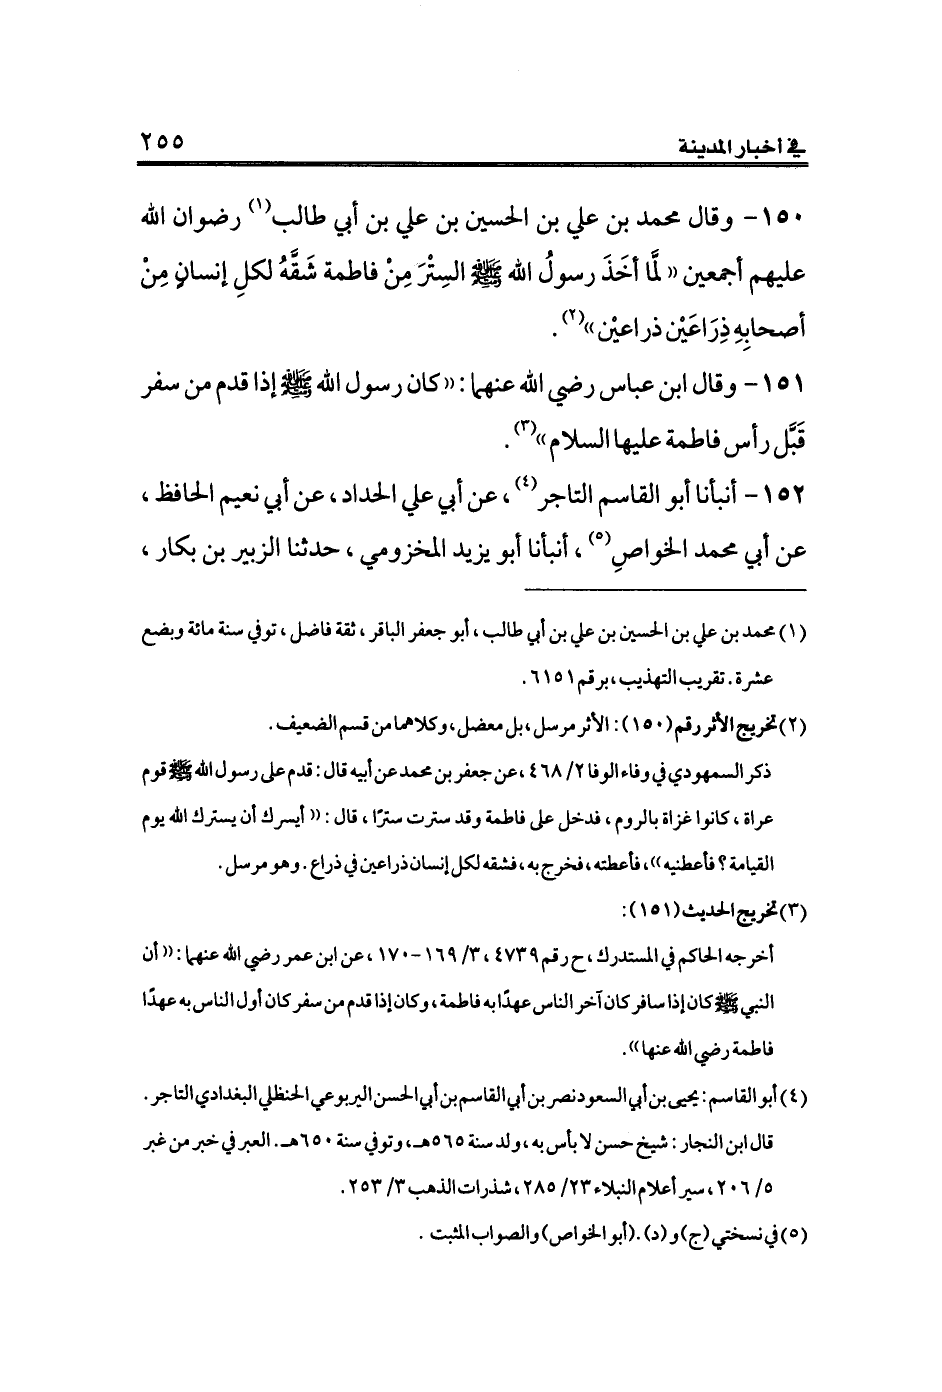 في أخبار المدينة ٢٥٥
١٥٠- وقال محمد بن علي بن الحسين بن علي بن أبي طالب(١) رضوان الله
عليهم أجمعين «لمَّا أخَذَ رسولُ الله ﷺ السِتْرَ مِنْ فاطمة شَقَّهُ لكلِ إنسانٍ مِنْ
أصحابِهِ ذِرَاعَيْن ذراعيْن»(٢).
١٥١- وقال ابن عباس رضي الله عنهما: «كان رسول الله ﷺ إذا قدم من سفر
قَبَّل رأس فاطمة عليها السلام»(٣).
١٥٢- أنبأنا أبو القاسم التاجر(٤)، عن أبي علي الحداد، عن أبي نعيم الحافظ،
عن أبي محمد الخواصِ(٥)، أنبأنا أبو يزيد المخزومي، حدثنا الزبير بن بكار،
(١) محمد بن علي بن الحسين بن علي بن أبي طالب، أبو جعفر الباقر، ثقة فاضل، توفي سنة مائة وبضع
عشرة. تقريب التهذيب، برقم ٦١٥١.
(٢) تخريج الأثر رقم (١٥٠): الأثر مرسل، بل معضل، وكلاهما من قسم الضعيف.
ذكر السمهودي في وفاء الوفا ٢/ ٤٦٨، عن جعفر بن محمد عن أبيه قال: قدم على رسول الله ﷺ قوم
عراة، كانوا غزاة بالروم، فدخل على فاطمة وقد سترت سترًا، قال: «أيسرك أن يسترك الله يوم
القيامة؟ فأعطنيه»، فأعطته، فخرج به، فشقه لكل إنسان ذراعين في ذراع. وهو مرسل.
(٣) تخريج الحديث (١٥١):
أخرجه الحاكم في المستدرك، ح رقم ٤٧٣٩، ٣/ ١٦٩-١٧٠، عن ابن عمر رضي الله عنهما: «أن
النبي ﷺ كان إذا سافر كان آخر الناس عهدًا به فاطمة، وكان إذا قدم من سفر كان أول الناس به عهدًا
فاطمة رضي الله عنها».
(٤) أبو القاسم: يحيى بن أبي السعود نصر بن أبي القاسم بن أبي الحسن اليربوعي الحنظلي البغدادي التاجر.
قال ابن النجار: شيخ حسن لا بأس به، ولد سنة ٥٦٥هـ، وتوفي سنة ٦٥٠هـ. العبر في خبر من غبر
٥/ ٢٠٦، سير أعلام النبلاء ٢٣/ ٢٨٥، شذرات الذهب ٣/ ٢٥٣.
(٥) في نسختي (ج) و (د). (أبو الخواص) والصواب المثبت.